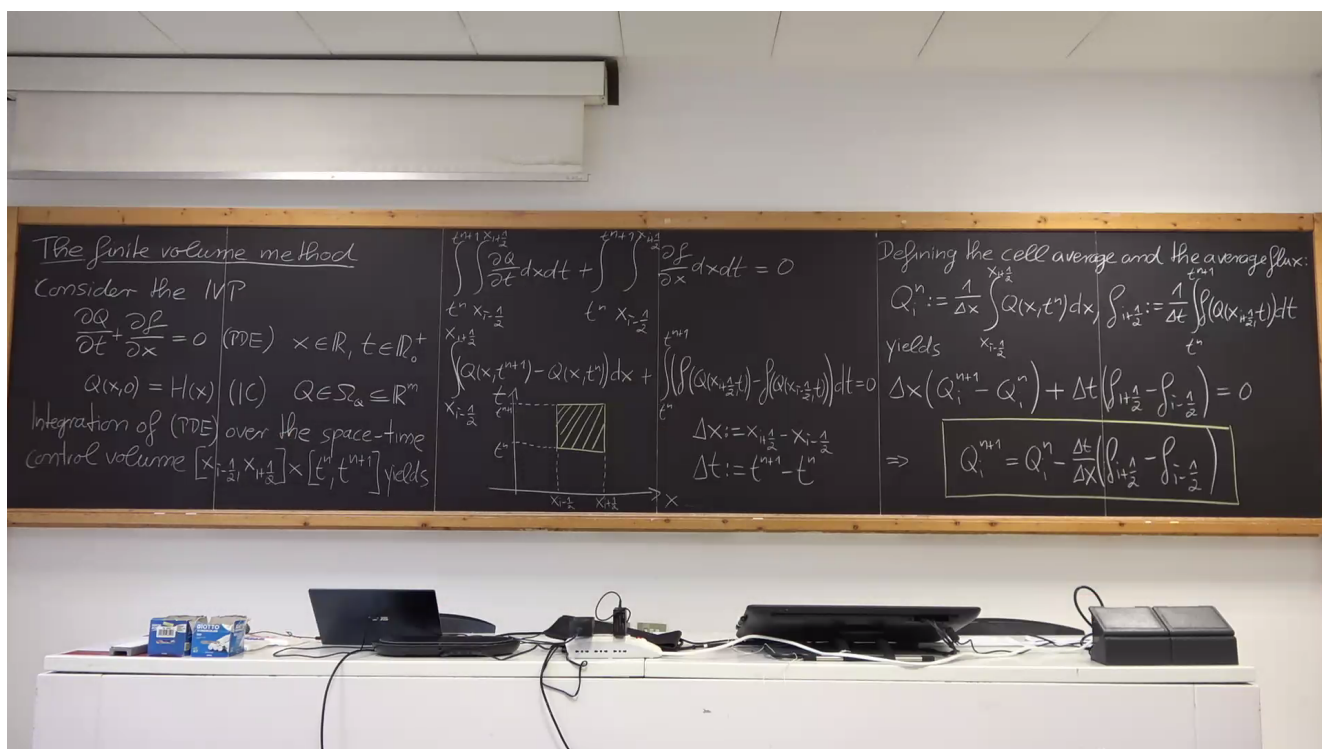 The finite volume method
Consider the IVP
∂Q/∂t + ∂f/∂x = 0 (PDE) x ∈ ℝ, t ∈ ℝ₀⁺
Q(x,0) = H(x) (IC) Q ∈ Ω_Q ⊆ ℝ^m
Integration of (PDE) over the space-time
control volume [x_{i-1/2}, x_{i+1/2}] × [t^n, t^{n+1}] yields
∫_{t^n}^{t^{n+1}} ∫_{x_{i-1/2}}^{x_{i+1/2}} ∂Q/∂t dxdt + ∫_{t^n}^{t^{n+1}} ∫_{x_{i-1/2}}^{x_{i+1/2}} ∂f/∂x dxdt = 0
∫_{x_{i-1/2}}^{x_{i+1/2}} (Q(x,t^{n+1}) - Q(x,t^n)) dx + ∫_{t^n}^{t^{n+1}} (f(Q(x_{i+1/2},t)) - f(Q(x_{i-1/2},t))) dt = 0
t
t^{n+1}
t^n
x_{i-1/2} x_{i+1/2} x
Δx := x_{i+1/2} - x_{i-1/2}
Δt := t^{n+1} - t^n
Defining the cell average and the average flux:
Q_i^n := 1/Δx ∫_{x_{i-1/2}}^{x_{i+1/2}} Q(x,t^n) dx, f_{i+1/2} := 1/Δt ∫_{t^n}^{t^{n+1}} f(Q(x_{i+1/2},t)) dt
yields
Δx(Q_i^{n+1} - Q_i^n) + Δt(f_{i+1/2} - f_{i-1/2}) = 0
⇒ Q_i^{n+1} = Q_i^n - Δt/Δx (f_{i+1/2} - f_{i-1/2})
GIOTTO